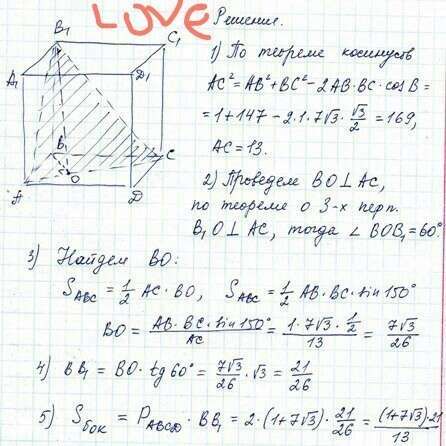 LOVE
Решение.
1) По теореме косинусов
AC² = AB² + BC² - 2AB·BC·cosB =
= 1 + 147 - 2·1·7√3·√3/2 = 169,
AC = 13.
2) Проведем BO ⊥ AC,
по теореме о 3-х перп.
B₁O ⊥ AC, тогда ∠BOB₁ = 60°
B₁
C₁
A₁
D₁
B₁
C
O
A
D
3) Найдем BO:
S_ABC = 1/2 AC·BO, S_ABC = 1/2 AB·BC·sin150°
BO = AB·BC·sin150°/AC = 1·7√3·1/2/13 = 7√3/26
4) BB₁ = BO·tg60° = 7√3/26·√3 = 21/26
5) S_бок = P_ABCD·BB₁ = 2·(1+7√3)·21/26 = (1+7√3)21/13